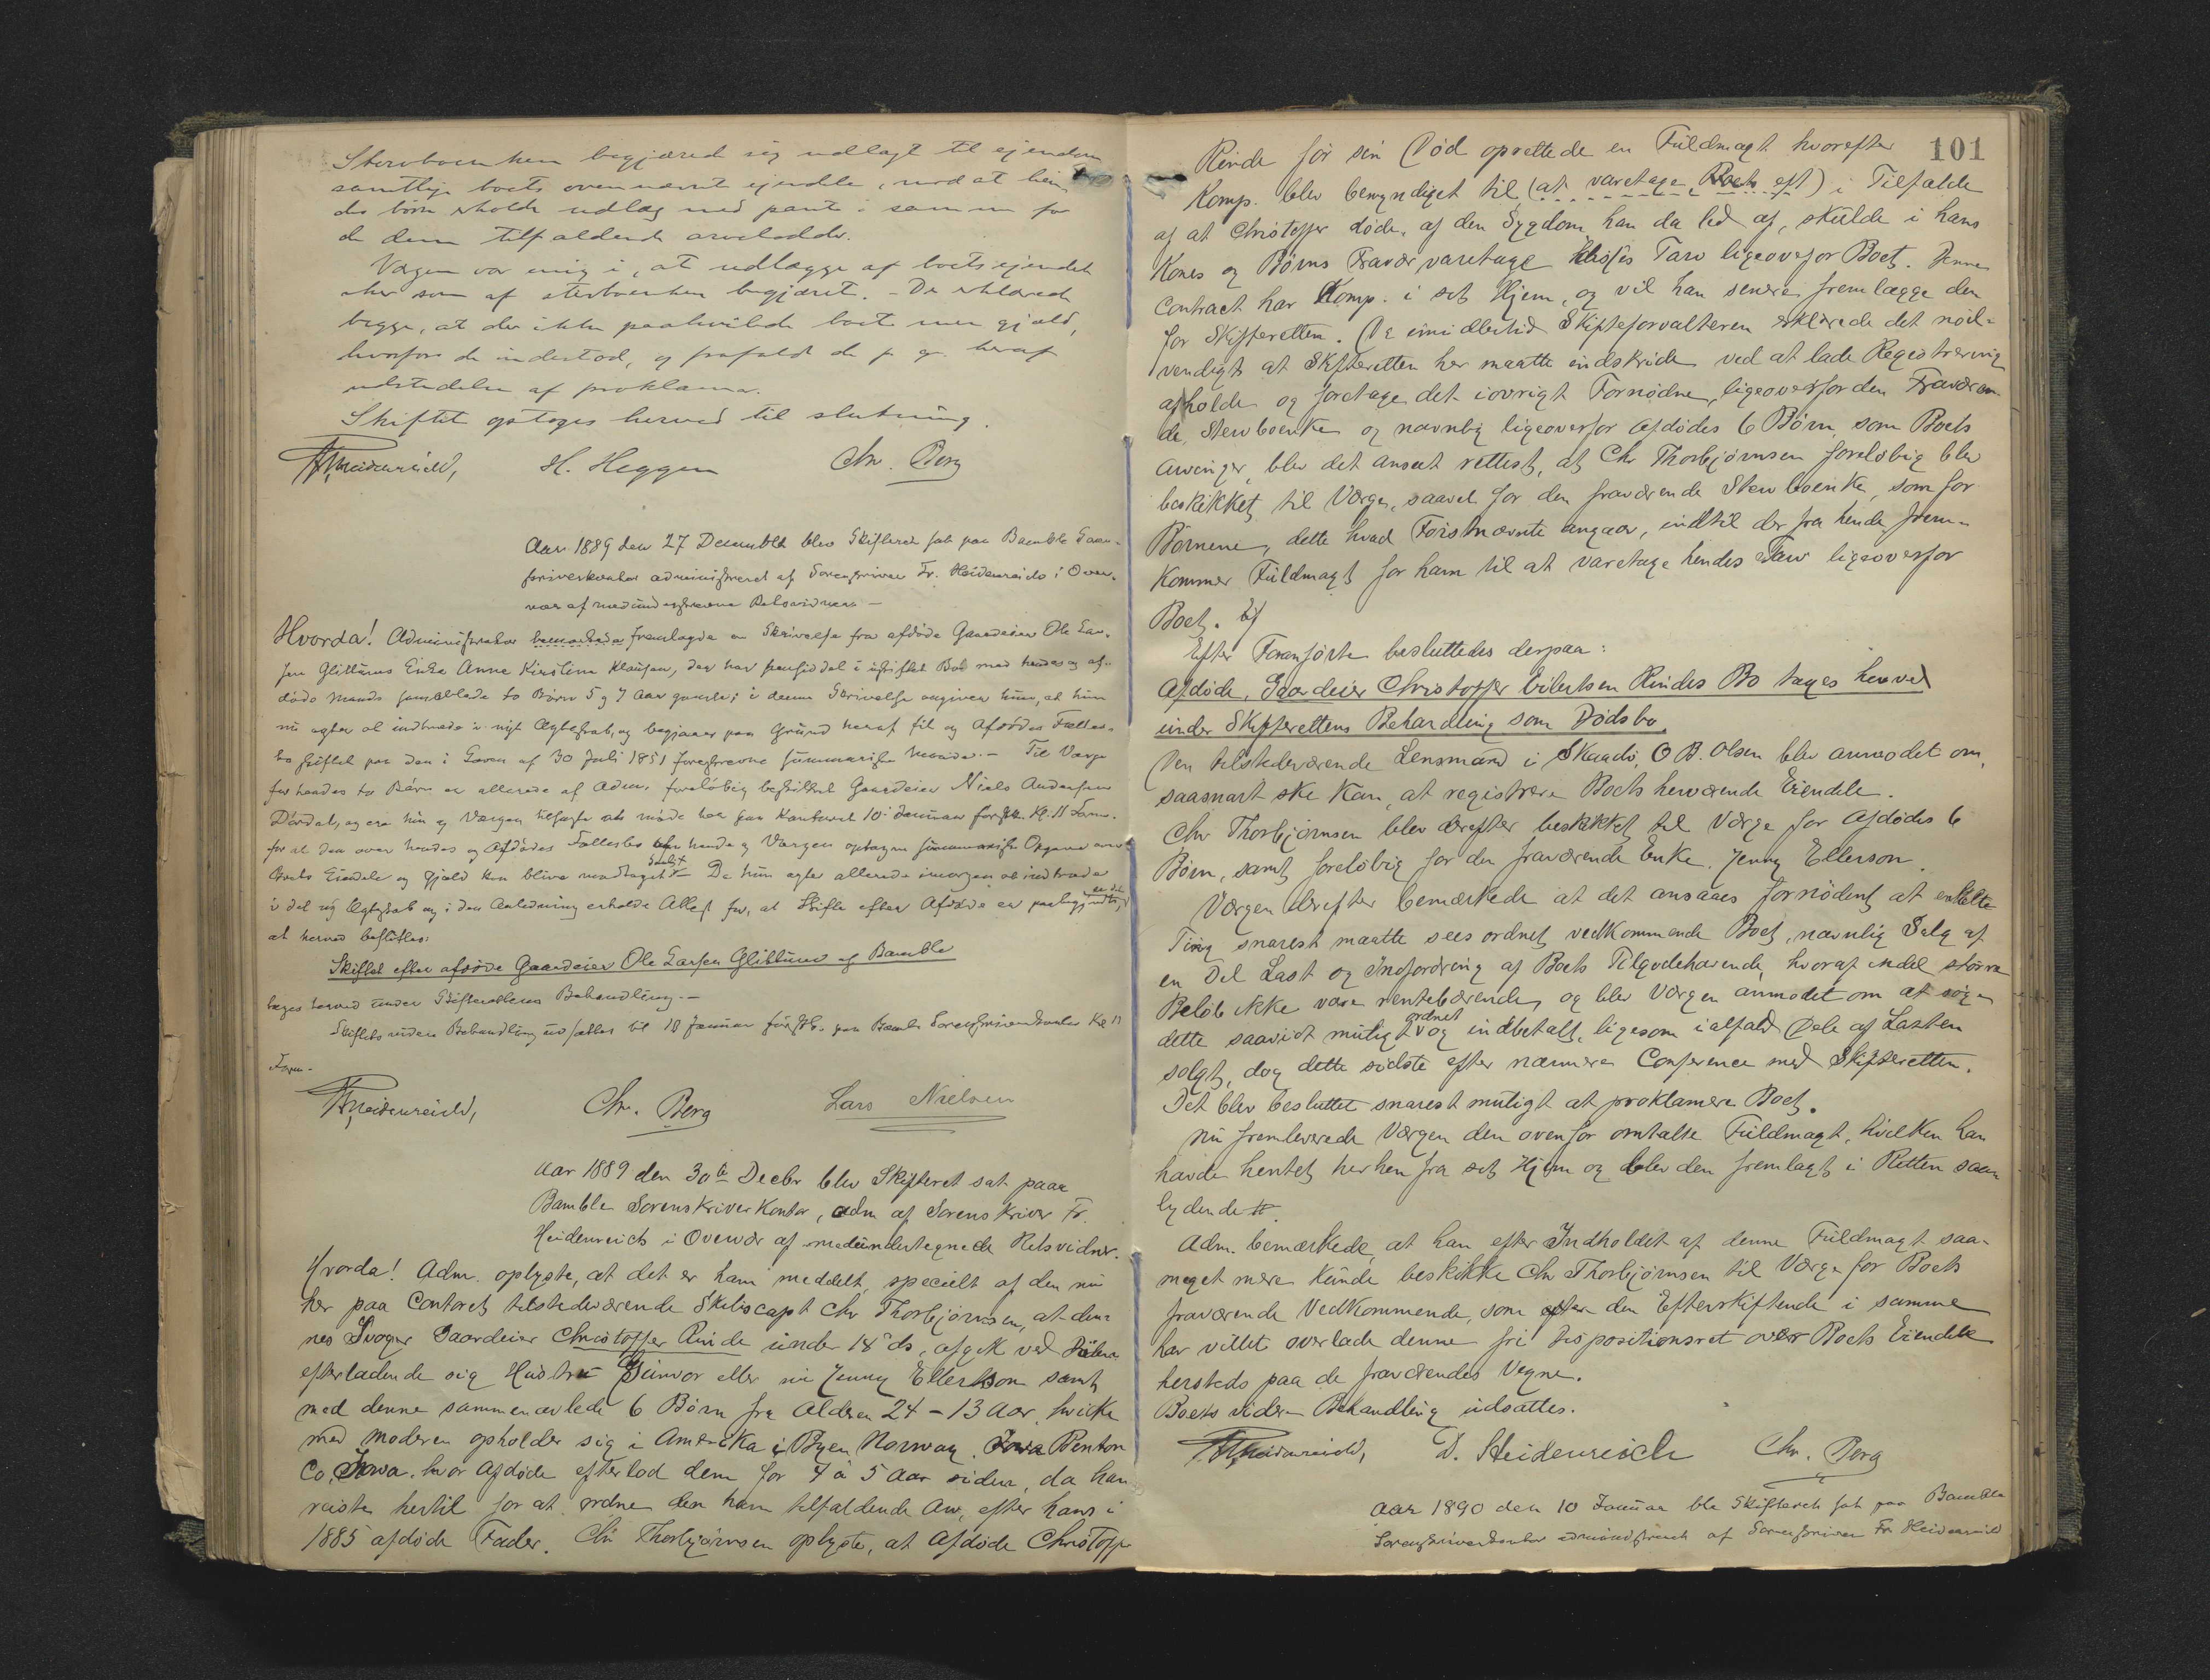 Stervboenken begjæred sig udlagt til ejendom
samtlige boets ovennævnte ejendele, mod at hen-
des børn erholde udlæg med pant i samme for
de dem tilfaldende arvelodder.
Værgen var enig i, at udlægge af boets ejendele
sker som af stervboenken begjæret. – De erklærede
begge, at der ikke paahvilede boet mer gjæld,
hvorfor de indestod, og frafaldt de p. g. heraf
udstedelse af proklama.
Skiftet optoges herved til slutning.
Fr. Heidenreich, H. Heggen Chr. Berg
Aar 1889 den 27 December blev Skifteret sat paa Bamble Soren-
skriverkontor administreret af Sorenskriver Fr. Heidenreich i Over-
vær af medunderskrevne Retsvidner. –
Hvorda! Administrator bemærkede fremlagde en Skrivelse fra afdøde Gaardeier Ole Lar-
sen Glittums Enke Anne Kirstine Klausen, der har hensiddet i uskiftet Bo med hendes og af-
døde Mands sammenavlede to Børn 5 og 7 Aar gamle; i denne Skrivelse angiver hun, at hun
nu agter at indtræde i nyt Ægteskab, og begjærer paa Grund heraf sit og Afdødes Fælles-
bo skiftet paa den i Loven af 30 Juli 1851 foreskrevne summariske Maade. – Til Værge
for hendes to Børn er allerede af Adm. foreløbig beskikket Gaardeier Niels Andersen
Dørdal, og ere hun og Værgen tilsagte at møde her paa Kontoret 10 Januar førstk. Kl. 11 Form.
for at den over hendes og Afdødes Fællesbo af hende og Værgen optagne summariske Opgave over
Boets Eiendele og Gjæld kan blive modtaget. Da hun agter allerede imorgen at indtræde
i det ny Ægteskab og i den Anledning erholde Attest for, at Skifte efter Afdøde er paabegyndt, er det
at herved besluttes:
Skiftet efter afdøde Gaardeier Ole Larsen Glittum af Bamble
tages herved under Skifterettens Behandling. –
Skiftets videre Behandling udsattes til 10 Januar førstk. paa Bamble Sorenskriverkontor Kl 11
Form.
Fr. Heidenreich, Chr. Berg Lars Nielsen
Aar 1889 den 30te Decbr blev Skifteret sat paa
Bamble Sorenskriverkontor, adm af Sorenskriver Fr.
Heidenreich i Overvær af medundertegnede Retsvidner.
Hvorda! Adm. oplyste, at det er ham meddelt, specielt af den nu
her paa Contoret tilstedeværende Skibscapt Chr Thorbjørnsen, at den-
nes Svoger Gaardeier Christoffer Rinde under 18 ds, afgik ved Døden
efterladende sig Hustru Gunvor eller nu Jenny Ellertson samt
med denne sammenavlede 6 Børn fra Alderen 24 – 13 Aar, hvilke
med Moderen opholder sig i Amerika i Byen Norway, Iowa Benton
Co, Iowa. hvor Afdøde efterlod dem for 4 à 5 Aar siden, da han
reiste hertil for at ordne den ham tilfaldende Arv, efter hans i
1885 afdøde Fader. Chr Thorbjørnsen oplyste, at Afdøde Christoffer
101
Rinde før sin Død oprettede en Fuldmagt hvorefter
Komp. blev bemyndiget til (at varetage Boets eft) i Tilfælde
af at Christoffer døde, af den Sygdom han da led af, skulde i hans
Kones og Børns Fravær varetage disses Tarv ligeoverfor Boet. Denne
Contract har Komp. i sit Hjem, og vil han senere fremlægge den
for Skifteretten. Da imidlertid Skifteforvalteren erklærede det nød-
vendigt at Skifteretten her maatte indskride ved at lade Registrering
afholde og foretage det iøvrigt Fornødne, ligeoverfor den Fraværen-
de, Stervboenke og navnlig ligeoverfor Afdødes 6 Børn som Boets
Arvinger, blev det anseet rettest, at Chr Thorbjørnsen foreløbig blev
beskikket til Værge, saavel for den fraværende Stervboenke, som for
Børnene, dette hvad Førstnævnte angaar, indtil der fra hende frem-
kommer Fuldmagt for ham til at varetage hendes Tarv ligeoverfor
Boet.
Efter Foranførte besluttedes derpaa:
Afdøde, Gaardeier Christoffer Eilertsen Rindes Bo tages herved
under Skifterettens Behandling som Dødsbo.
Den tilstedeværende Lensmand i Skaadø, O B. Olsen blev anmodet om,
saasnart ske kan, at registrere Boets herværende Eiendele.
Chr Thorbjørnsen blev derefter beskikket til Værge for Afdødes 6
Børn, samt foreløbig for den fraværende Enke. Jenny Ellerson.
Værgen derefter bemærkede at det ansaaes fornødent at enkelte
Ting snarest maatte sees ordnet vedkommende Boet, navnlig Salg af
en Del Last og Indfordring af Boets Tilgodehavende, hvoraf endel større
Beløb ikke vare rentebærende, og blev Værgen anmodet om at søge
dette saavidt muligt ordnet og indbetalt, ligesom ialfald Dele af Lasten
solgt, dog dette sidste efter nærmere Conference med Skifteretten.
Det blev besluttet snarest muligt at proklamere Boet.
Nu fremleverede Værgen den ovenfor omtalte Fuldmagt, hvilken han
havde hentet herhen fra sit Hjem og blev den fremlagt i Retten saa-
lydende
Adm. bemærkede, at han efter Indholdet af denne Fuldmagt saa-
meget mere kunde beskikke Chr Thorbjørnsen til Værge for Boets
fraværende Vedkommende, som efter den Efterskiftende i samme
har villet overlade denne fri Dispositionsret over Boets Eiendele
hersteds paa de fraværendes Vegne.
Boets videre Behandling udsattes.
Fr. Heidenreich, D. Heidenreich Chr. Berg
Aar 1890 den 10 Januar ble Skifteret sat paa Bamble
Sorenskriverkontor administreret af Sorenskriver Fr Heidenreich